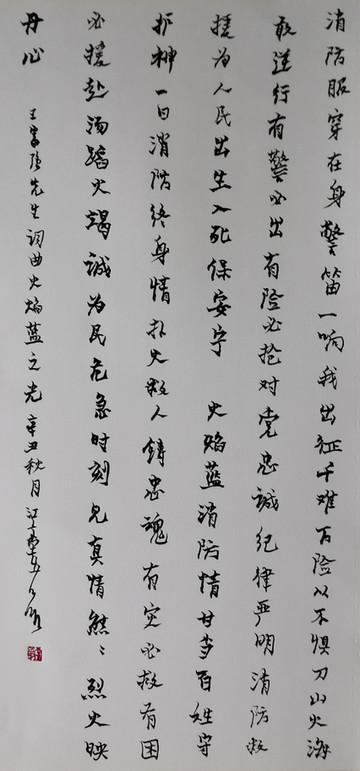 消防服穿在身警笛一响我出征千难万险以不惧刀山火海
敢逆行有警必出有险必抢对党忠诚纪律严明消防救
援为人民出生入死保安宁 火焰蓝消防情甘当百姓守
护神一日消防终身情扑火救人铸忠魂有灾必救有困
必援赴汤蹈火竭诚为民危急时刻见真情熊々烈火映
丹心
先生词曲火焰蓝之光辛丑秋月江